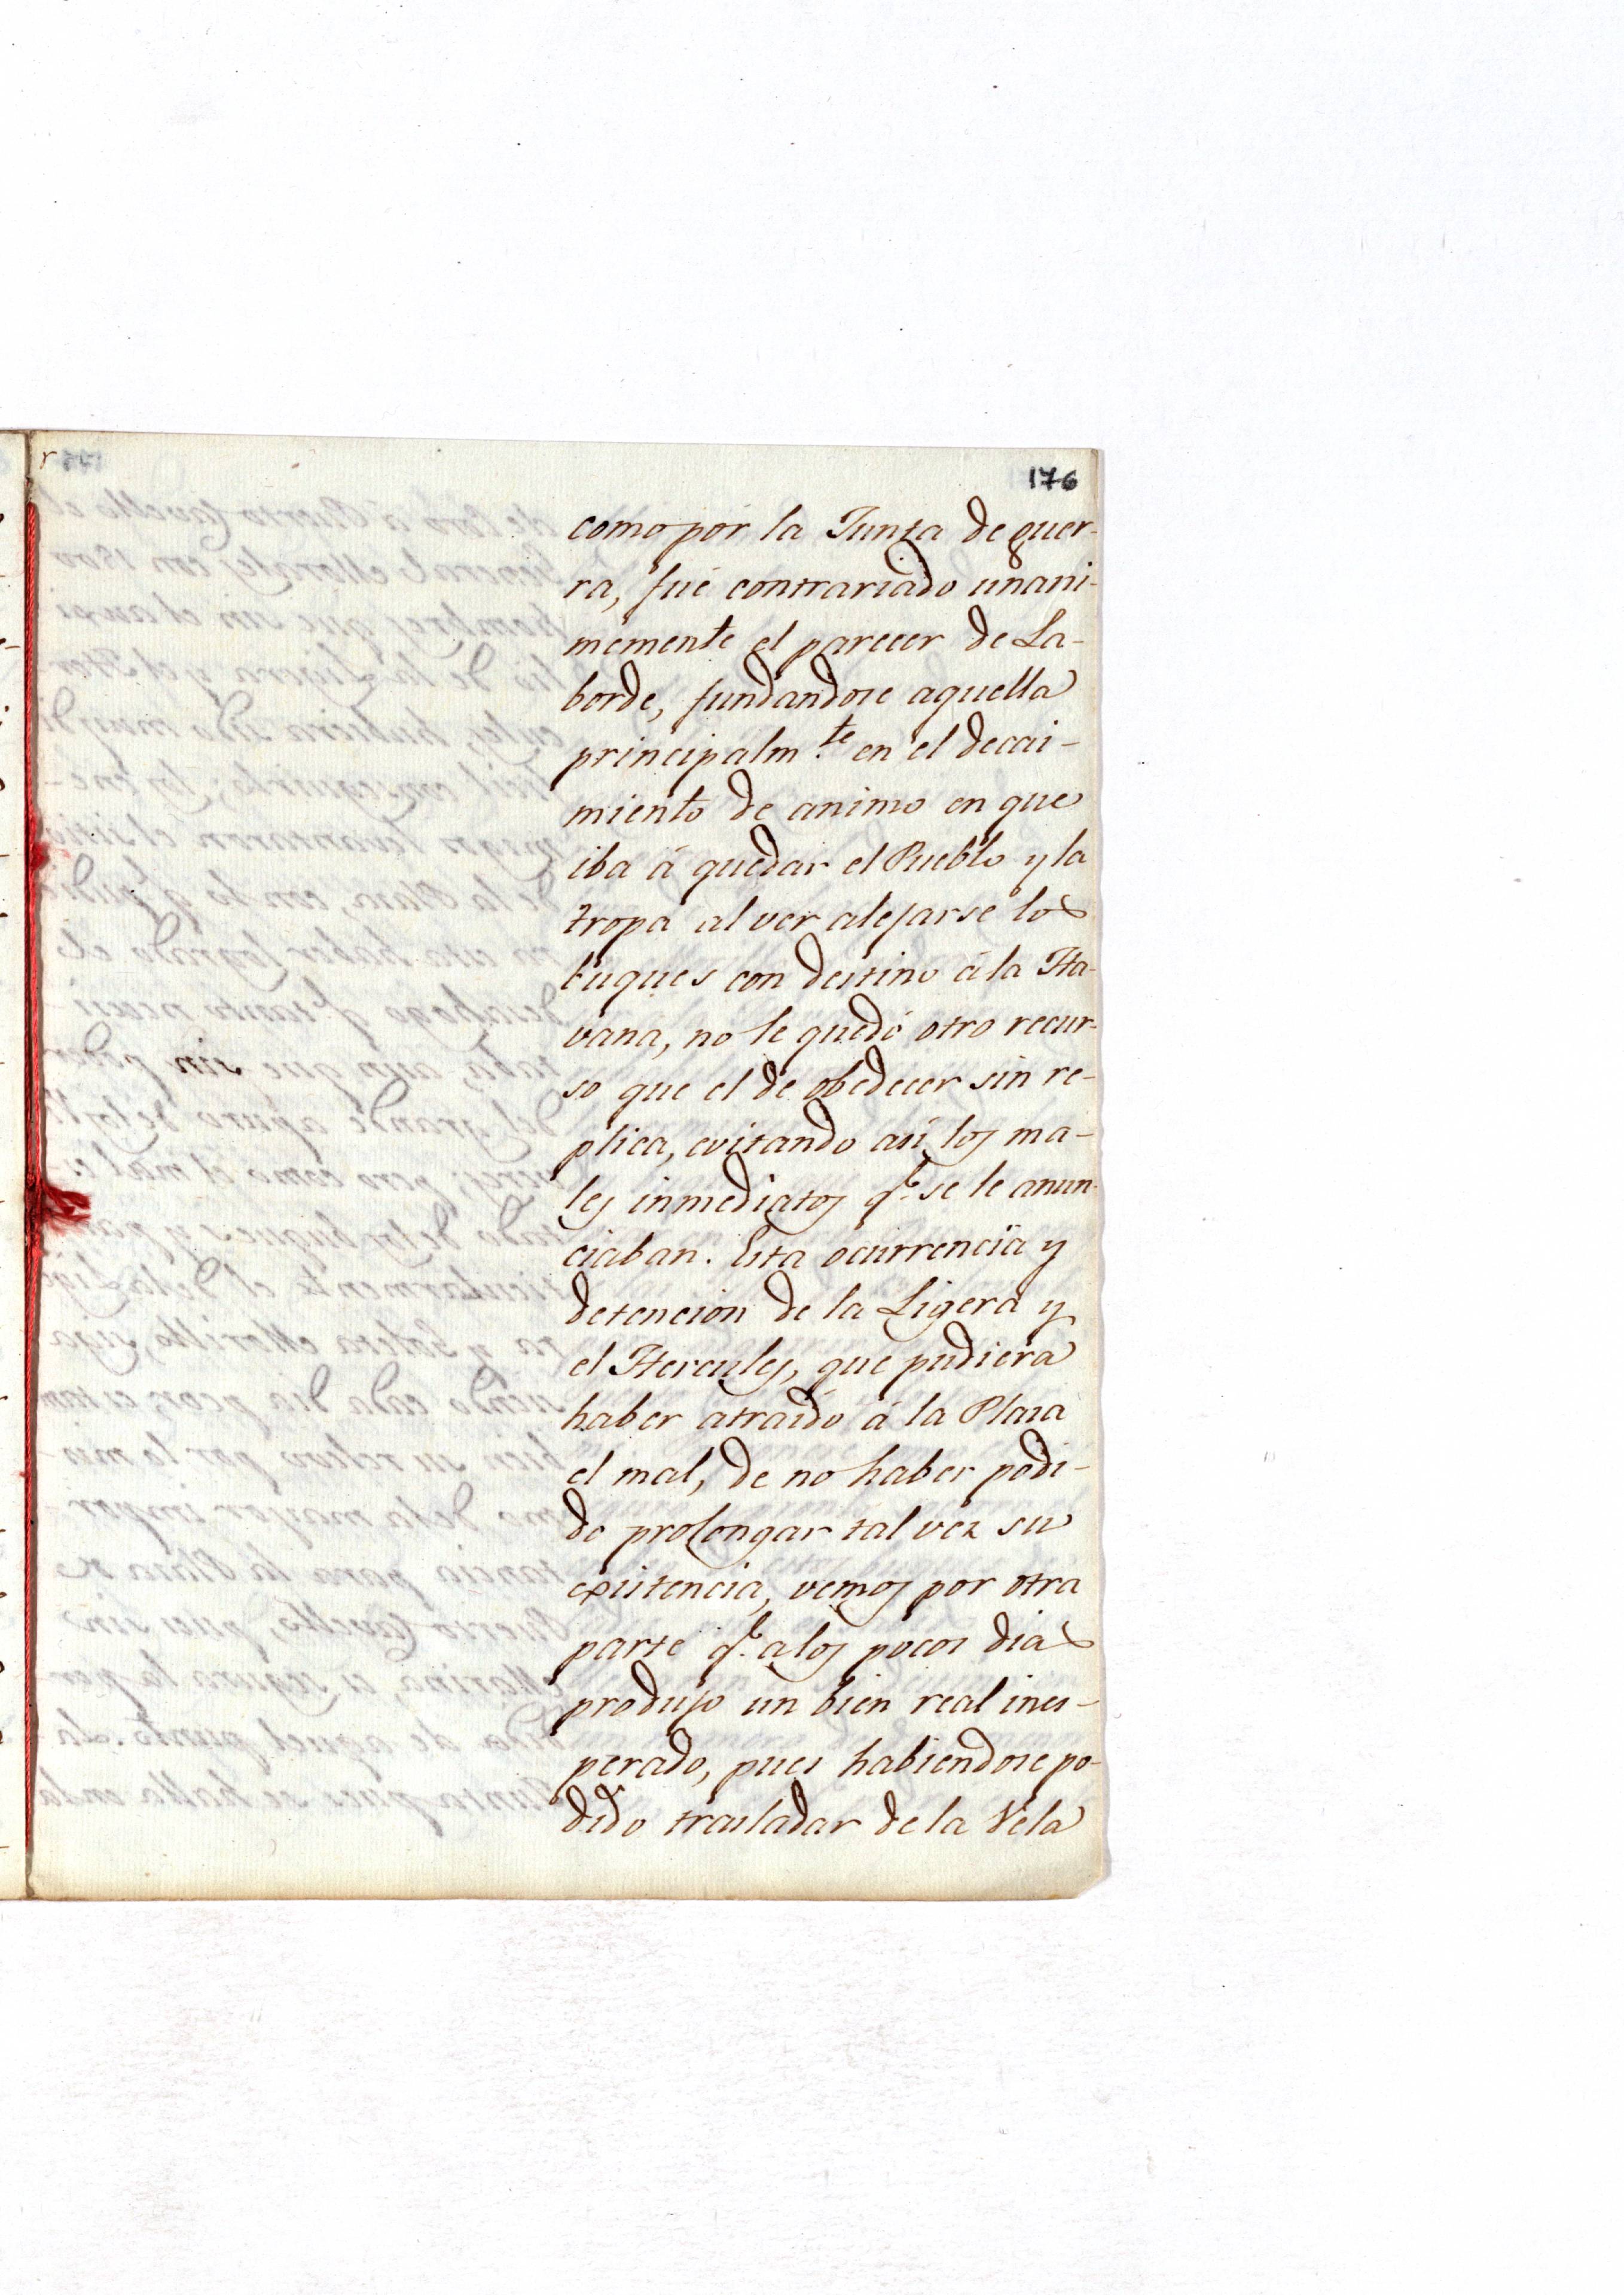 176
como por la Junta de guer-
ra, fué contrariado unani-
memente el parecer de La-
borde, fundandose aquella
principalm.te en el decai-
miento de animo en que
iba á quedar el Pueblo y la
tropa al ver alejarse los
buques con destino á la Ha-
vana, no le quedó otro recur-
so que el de obedecer sin re-
plica, evitando asi los ma-
les inmediatos q.e se le anun-
ciaban. Esta ocurrencia y
detencion de la Ligera y
el Hercules, que pudiera
haber atraido á la Plaza
el mal, de no haber podi-
do prolongar tal vez su
existencia, vemos por otra
parte q.e a los pocos dias
produjo un bien real ines-
perado, pues habiendose po-
dido trasladar de la Vela